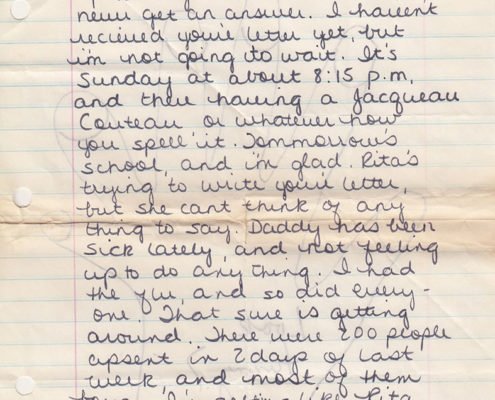 never get an answer. I haven't
recieved your letter yet, but
i'm not going to wait. It's
Sunday at about 8:15 p.m,
and their having a Jacqueau
Couteau or whatever how
you spell it. Tommorrow's
school, and i'm glad. Rita's
trying to write your letter,
but she cant think of any
thing to say. Daddy has been
sick lately, and not feeling
up to do any thing. I had
the flu, and so did every-
one. That sure is getting
around. There were 200 people
apsent in 2 days of last
week, and most of them
I'm getting like Rita